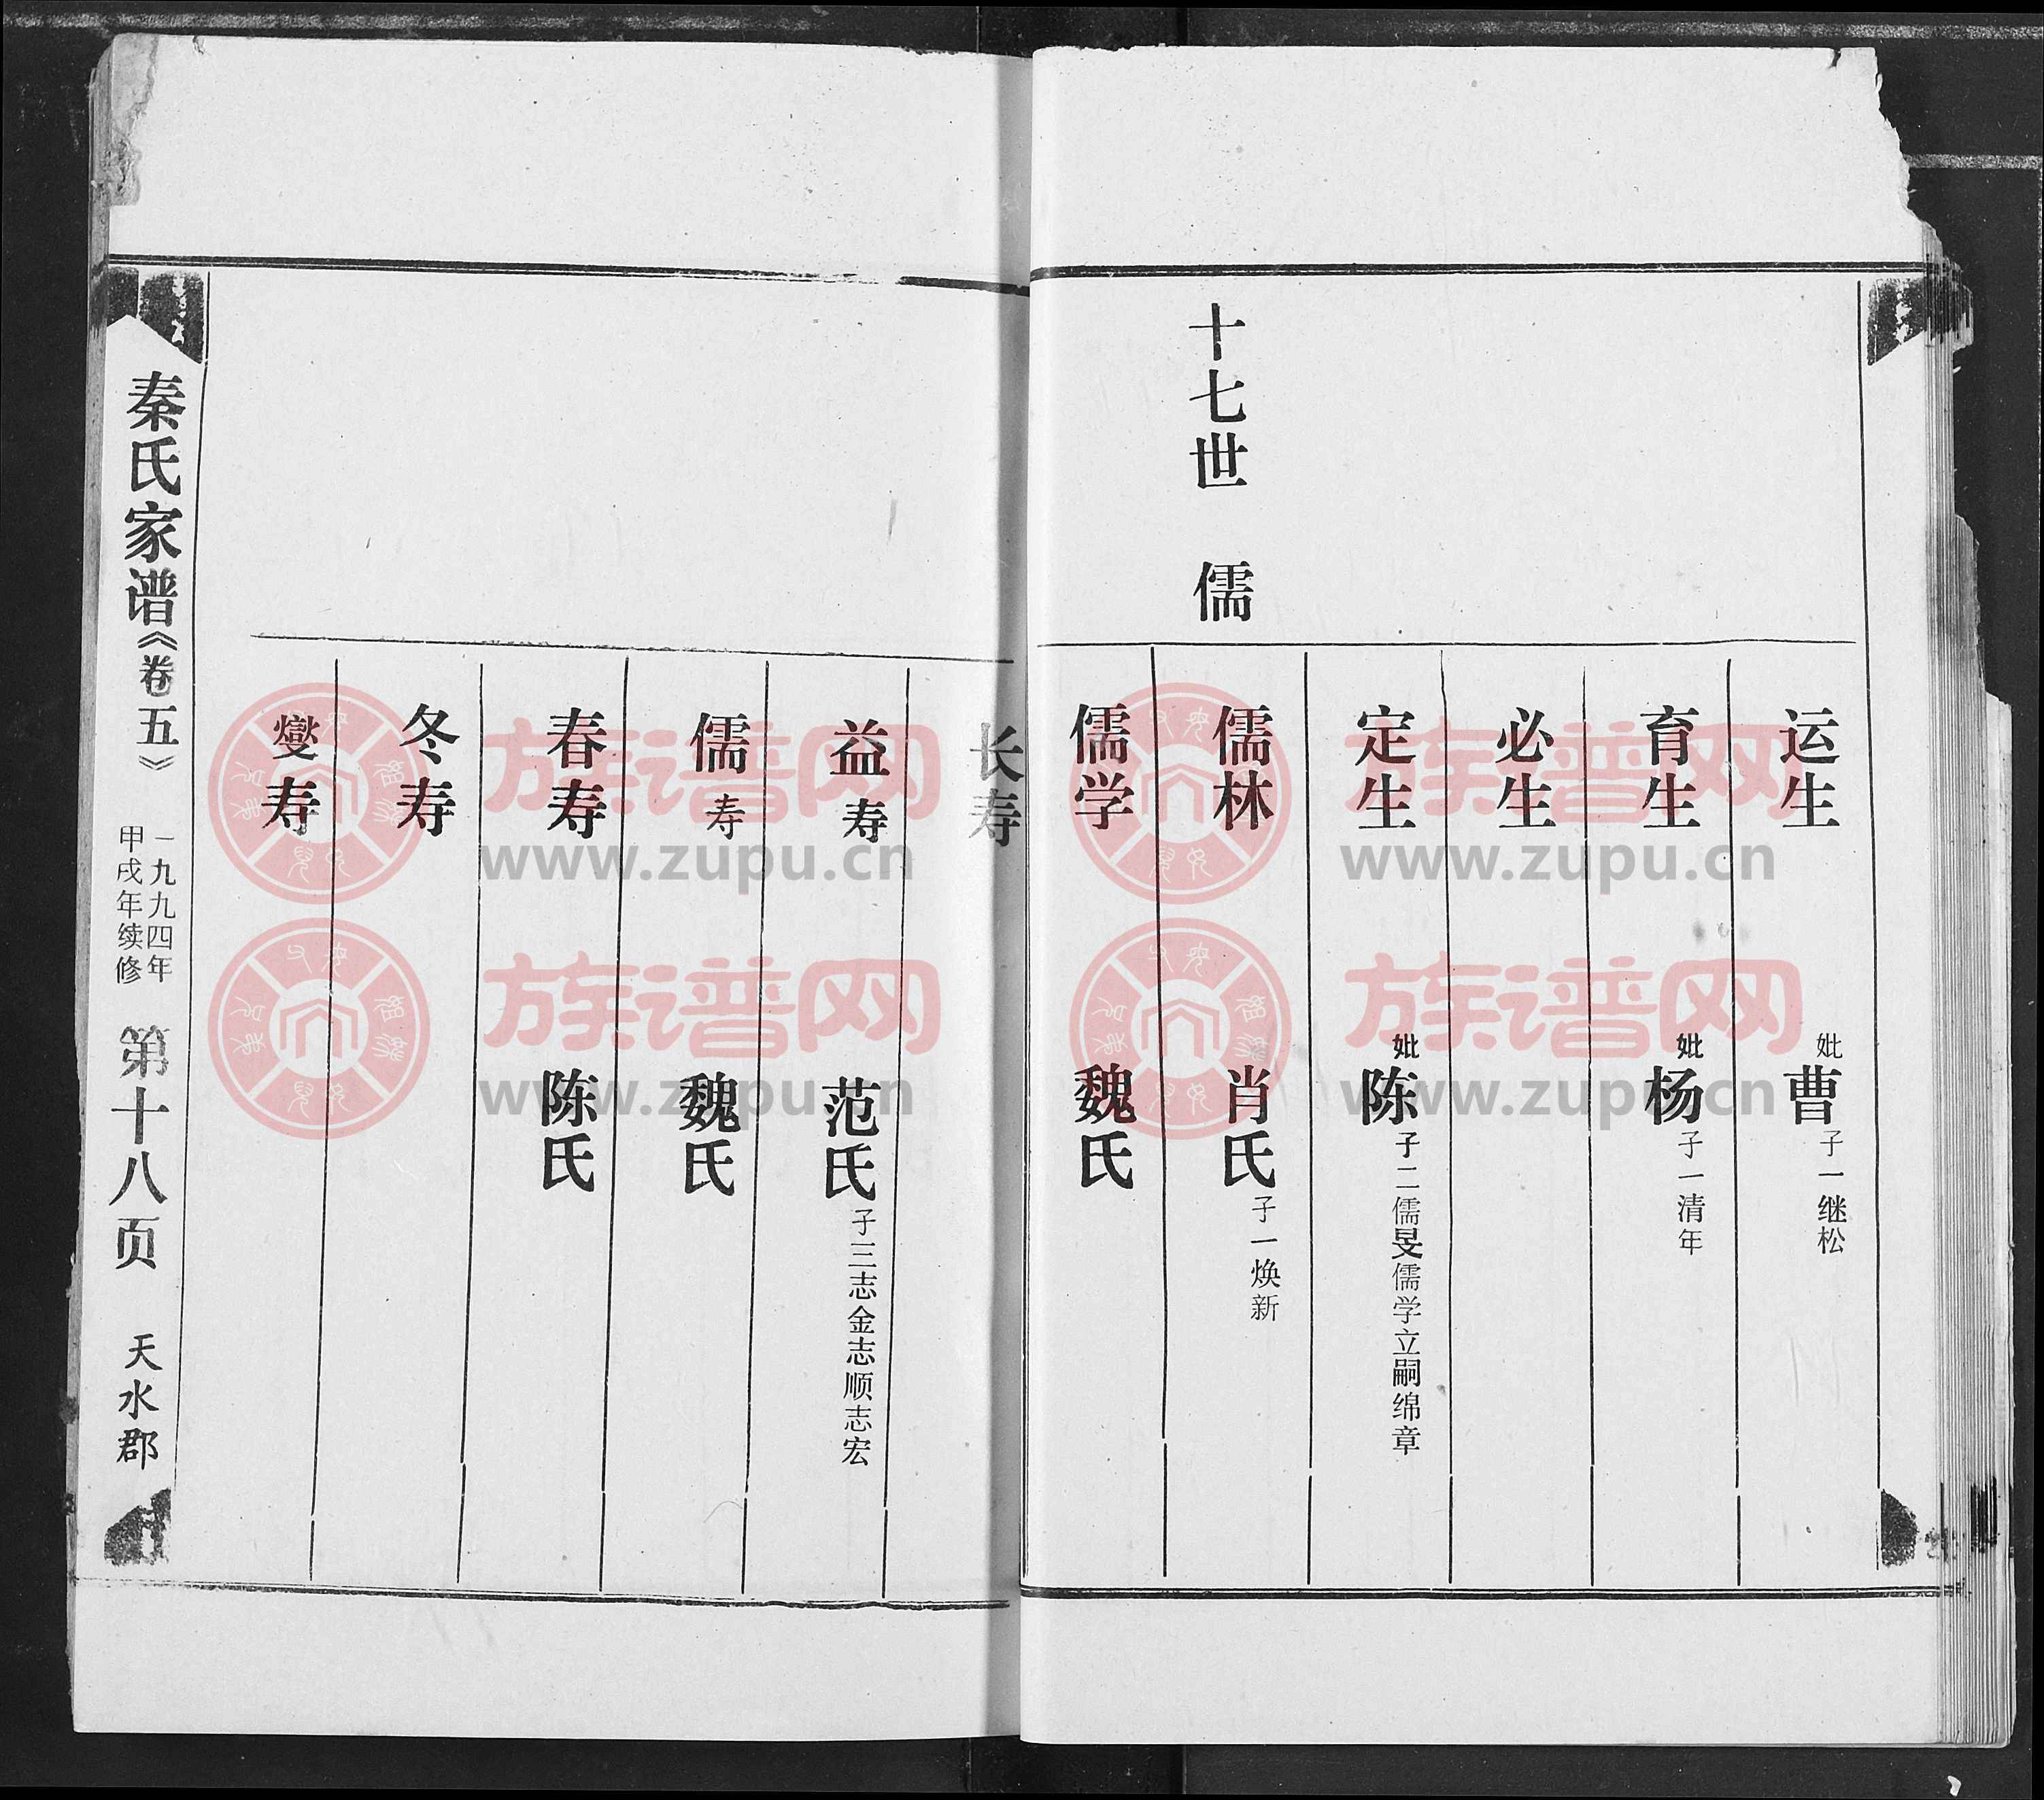 运生 妣曹 子一继松
育生 妣杨 子一清年
必生
定生 妣陈 子二儒旻儒学立嗣绵章
十七世 儒
儒林 肖氏 子一焕新
儒学 魏氏
长寿
益寿 范氏 子三志金志顺志宏
儒寿 魏氏
春寿 陈氏
冬寿
燮寿
秦氏家谱《卷五》
一九九四年
甲戌年续修
第十八页
天水郡
族谱网
www.zupu.cn
族谱网
www.zupu.cn
族谱网
www.zupu.cn
族谱网
www.zupu.cn